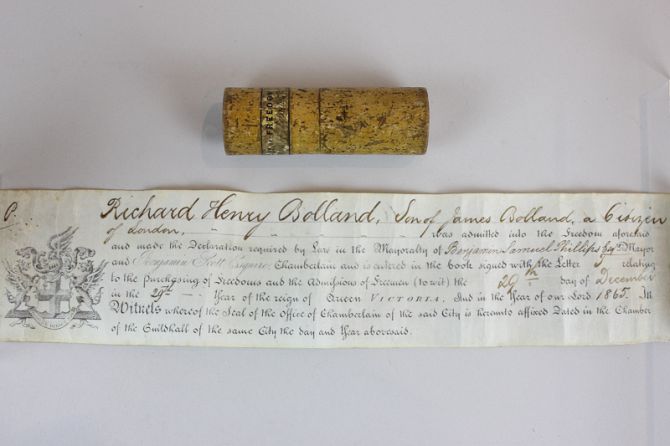 FREEDOM
Richard Henry Bolland, Son of James Bolland, a Citizen
of London, was admitted into the Freedom aforesaid
and made the Declaration required by Law in the Mayoralty of Benjamin Samuel Phillips Esqr. Mayor
and Benjamin Scott Esquire Chamberlain and is entered in the book signed with the Letter relating
to the purchasing of Freedoms and the Admissions of Freemen (to wit) the 29th day of December
in the 29th Year of the reign of Queen VICTORIA, And in the Year of our Lord 1865. In
Witness whereof the Seal of the Office of Chamberlain of the said City is hereunto affixed Dated in the Chamber
of the Guildhall of the same City the day and Year aforesaid.